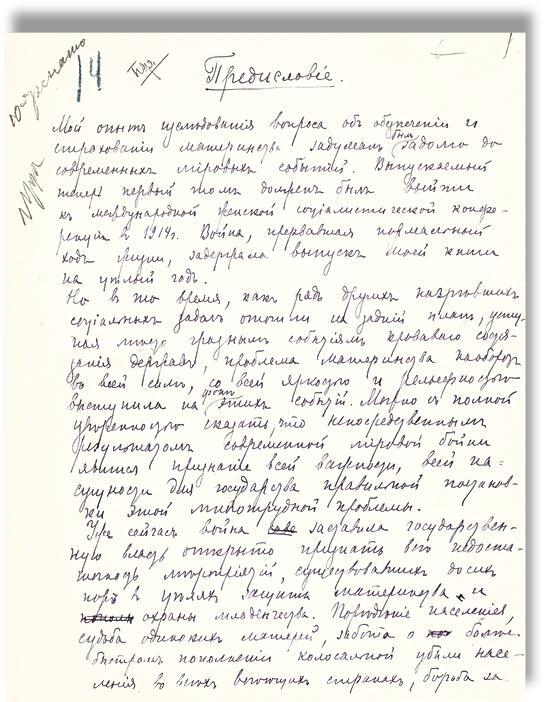 14
Предисловіе.
Мой опытъ изслѣдованія вопроса объ обезпеченіи и
страхованіи материнства задуманъ былъ задолго до
современныхъ міровыхъ событій. Выпускаемый
теперь первый томъ долженъ былъ выйти
къ международной женской соціалистической конфе-
ренціи въ 1914г. Война, прервавшая
ходъ жизни, задержала выпускъ моей книги
на цѣлый годъ.
Но въ то время, какъ рядъ другихъ назрѣвшихъ
соціальныхъ задачъ отошли на задній планъ, усту-
пая мѣсто грознымъ событіямъ кроваваго
державъ, проблема материнства наоборотъ
во всей силѣ, со всей яркостью и рельефностью
выступила на фонѣ этихъ событій. Можно съ полной
увѣренностью сказать, что непосредственнымъ
результатомъ современной міровой войны
явится признаніе всей важности, всей на-
сущности для государства правильной постанов-
ки этой многотрудной проблемы.
Уже сейчасъ война заставила государствен-
ную власть открыто признать всю недоста-
точность мѣропріятій, существовавшихъ до сихъ
поръ въ цѣляхъ защиты материнства и
охраны младенчества. Порѣдѣніе населенія,
судьба одинокихъ матерей, забота о болѣе
быстромъ пополненіи колосальной убыли насе-
ленія во всѣхъ воюющихъ странахъ, борьба за